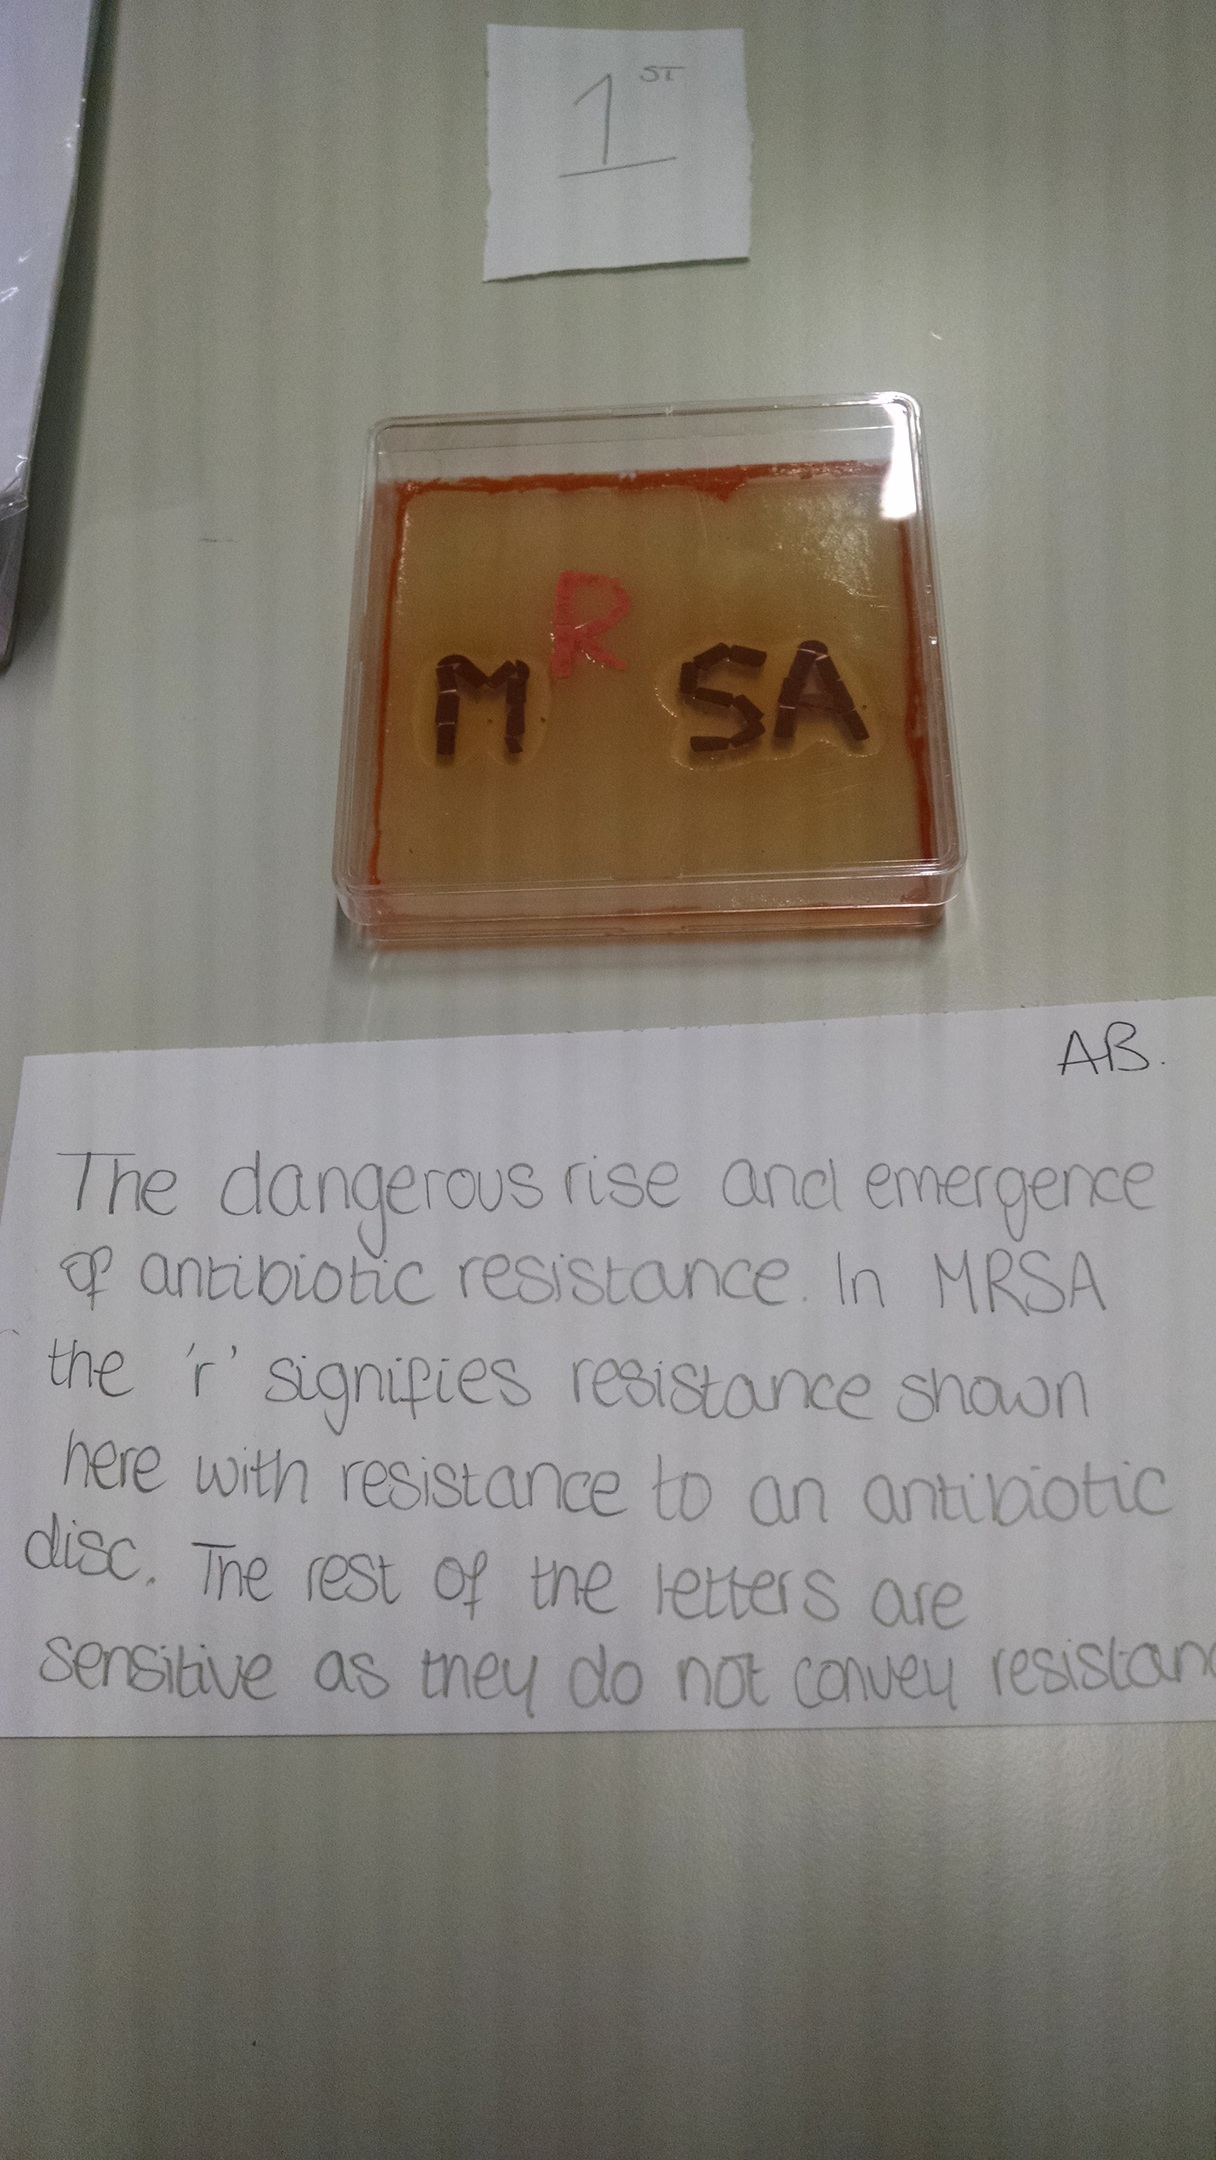 1ST
M R SA
AB.
The dangerous rise and emergence
of antibiotic resistance. In MRSA
the 'r' signifies resistance shown
here with resistance to an antibiotic
disc. The rest of the letters are
sensitive as they do not convey resistanc